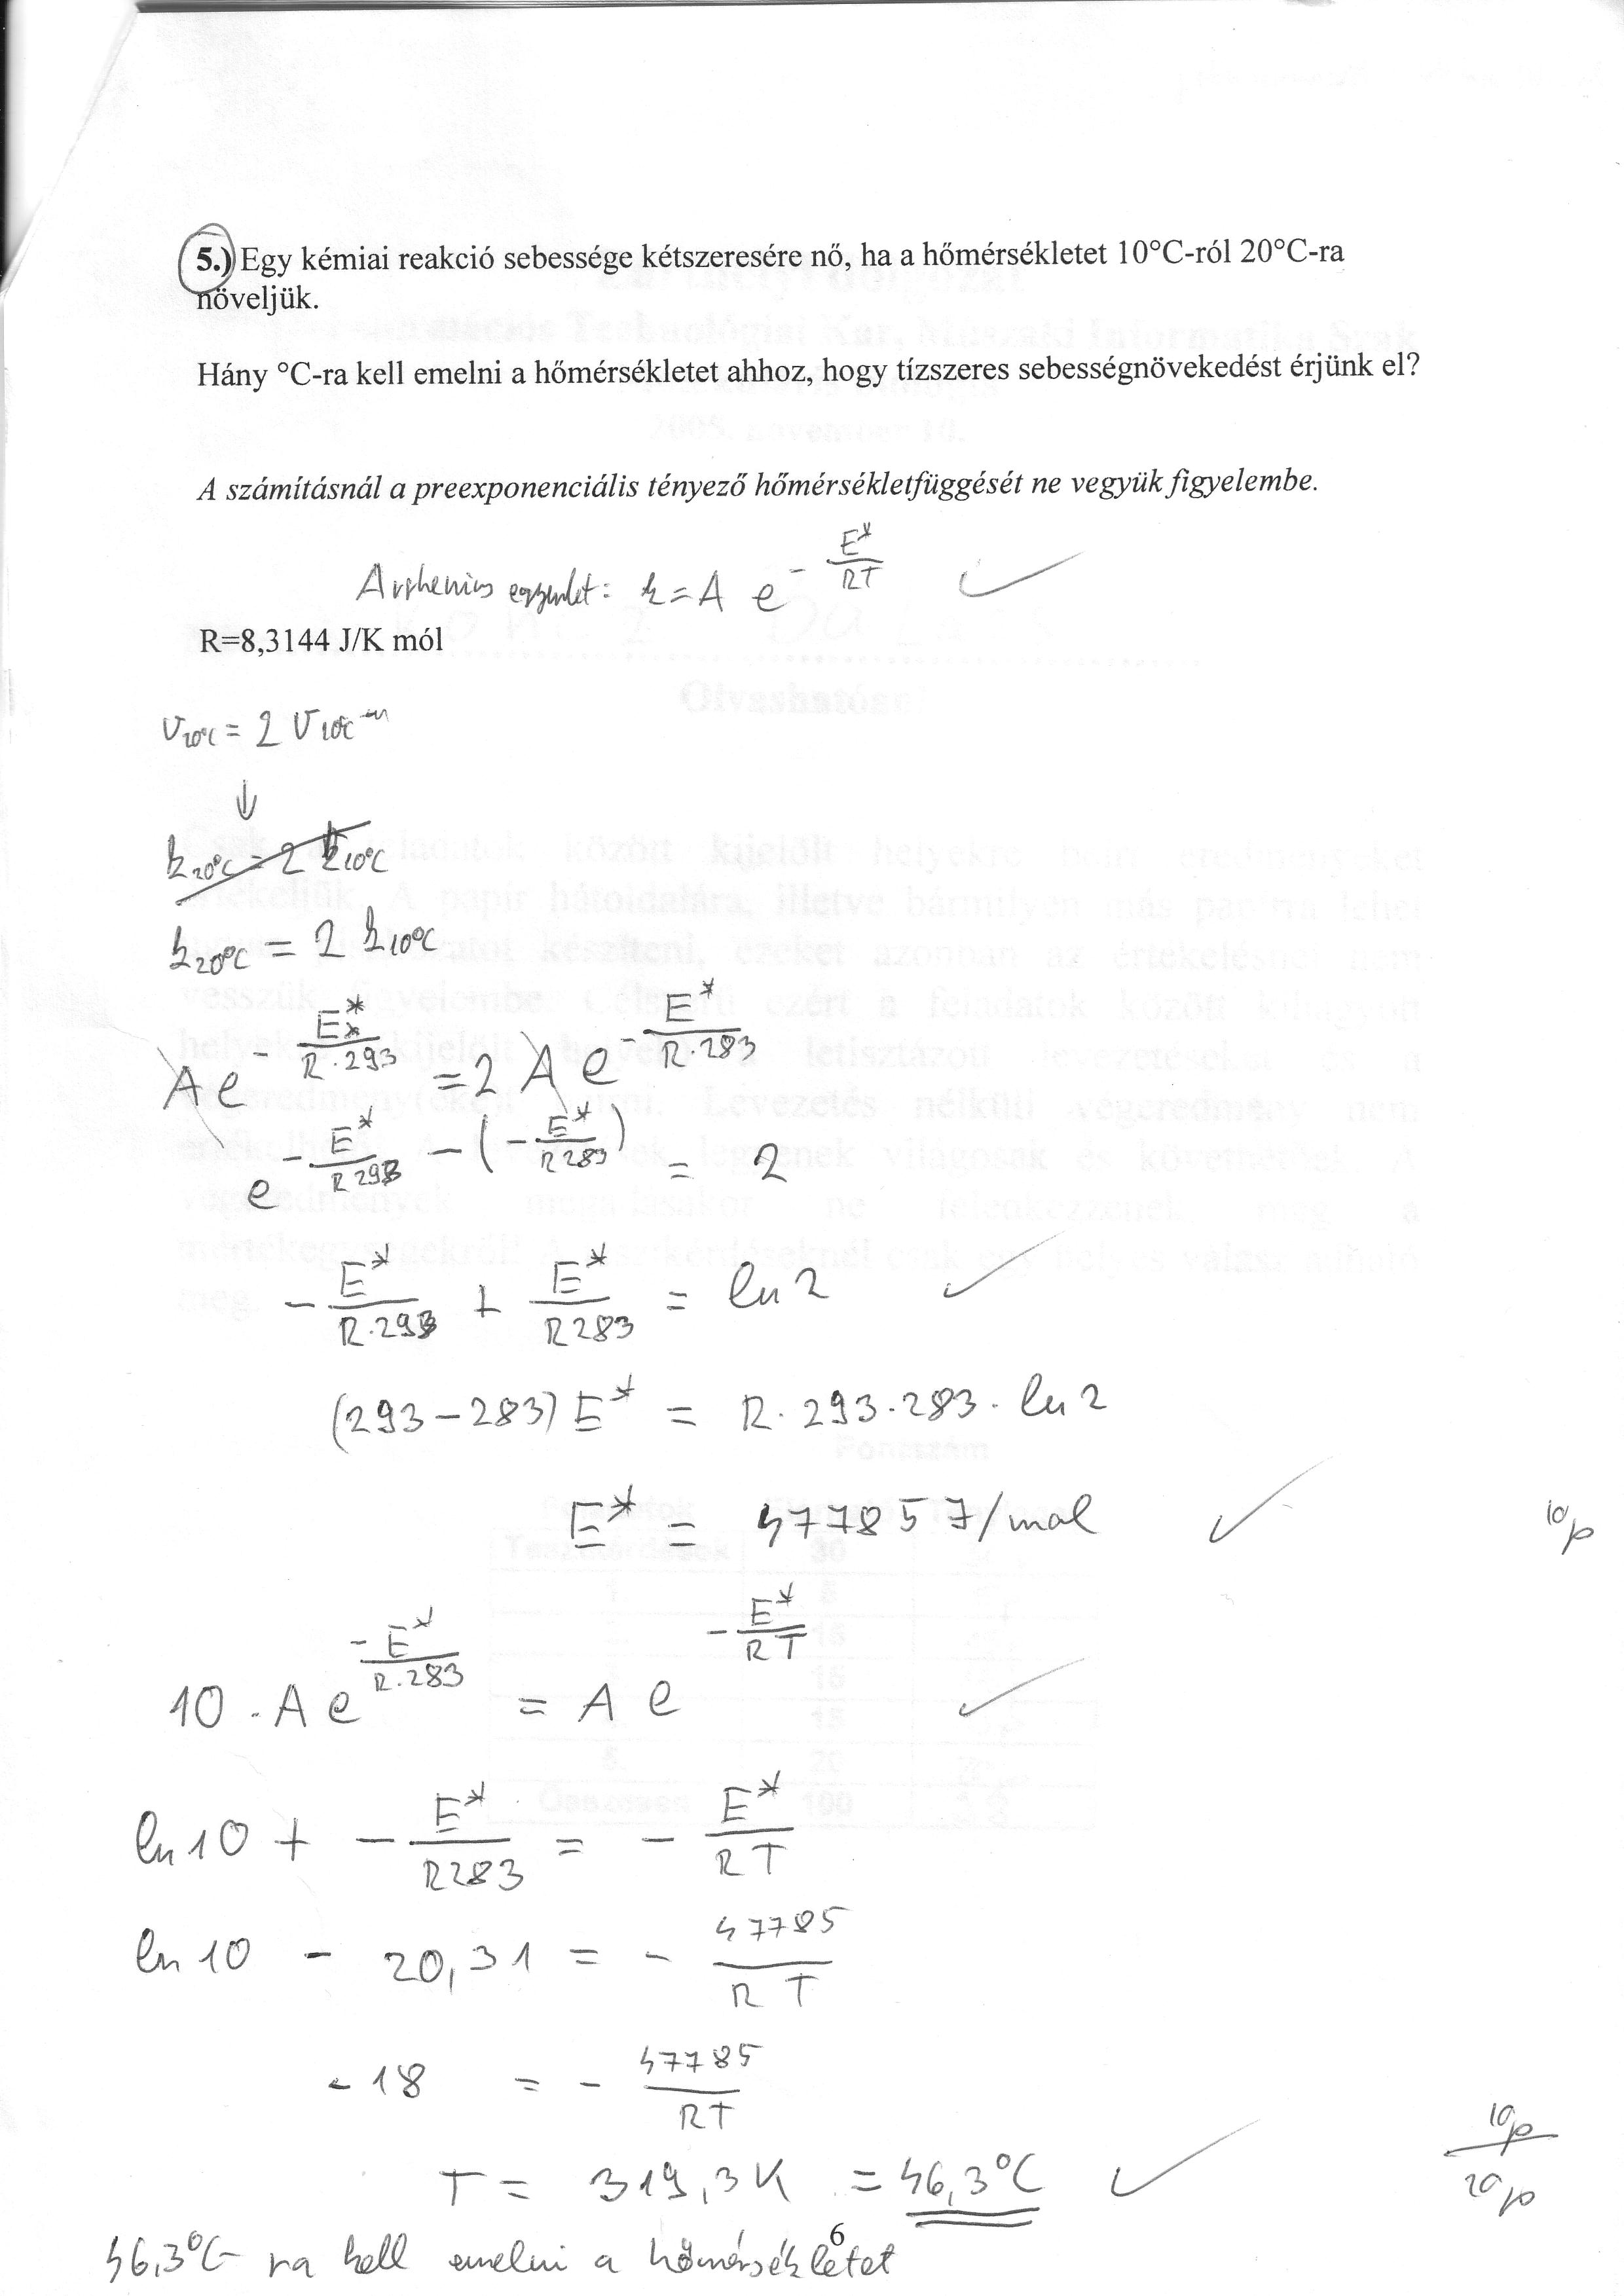 5.) Egy kémiai reakció sebessége kétszeresére nő, ha a hőmérsékletet 10°C-ról 20°C-ra
növeljük.
Hány °C-ra kell emelni a hőmérsékletet ahhoz, hogy tízszeres sebességnövekedést érjünk el?
A számításnál a preexponenciális tényező hőmérsékletfüggését ne vegyük figyelembe.
Arrhenius egyenlet: k = A e^(-E*/RT)
R=8,3144 J/K mól
v20°C = 2 v10°C
↓
k20°C = 2 k10°C
k20°C = 2 k10°C
A e^(-E*/R·293) = 2 A e^(-E*/R·283)
e^(-E*/R293 - (-E*/R283)) = 2
-E*/R·293 + E*/R283 = ln 2
(293-283) E* = R·293·283·ln 2
E* = 47785 J/mol
10p
10·A e^(-E*/R·283) = A e^(-E*/RT)
ln 10 + -E*/R283 = -E*/RT
ln 10 - 20,31 = -47785/RT
-18 = -47785/RT
10p
T = 319,3 K = 46,3°C
20p
6
46,3°C-ra kell emelni a hőmérsékletet